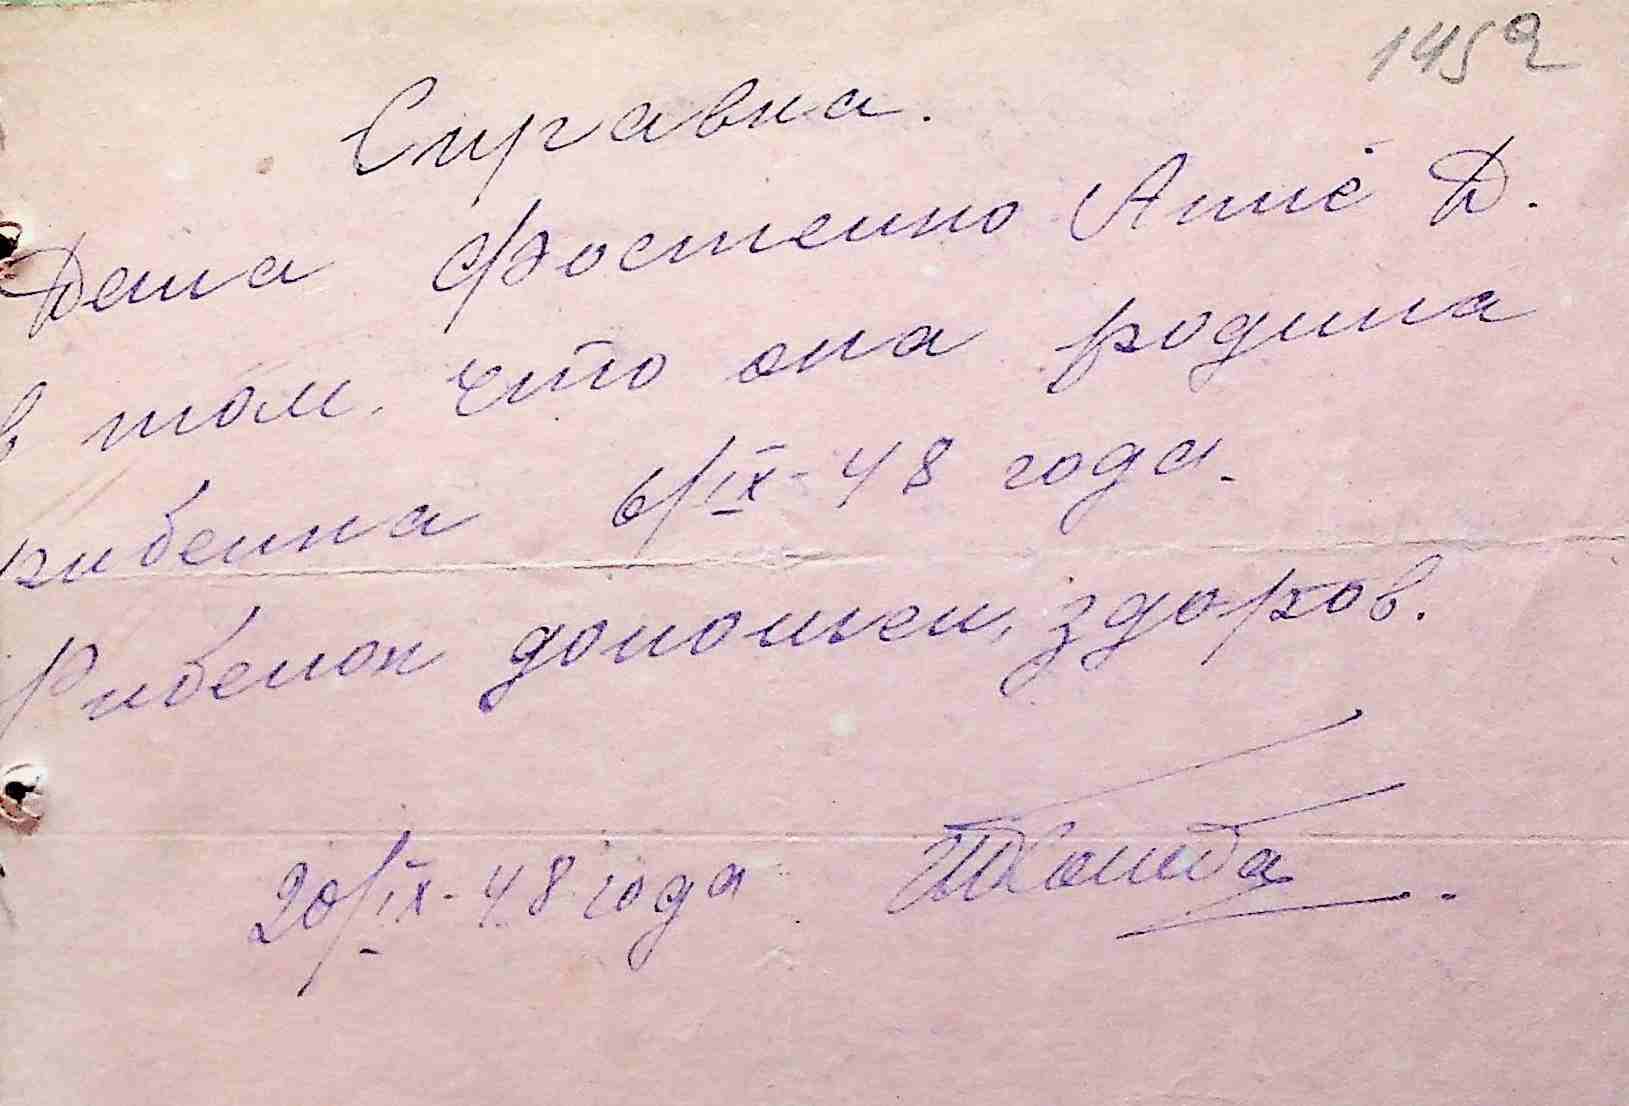 1452
Справка.
Дана Фостенко Анне Д.
в том, что она родила
рибенка 6/IX-48 года.
Рибенок доношен, здоров.
20/IX-48 года